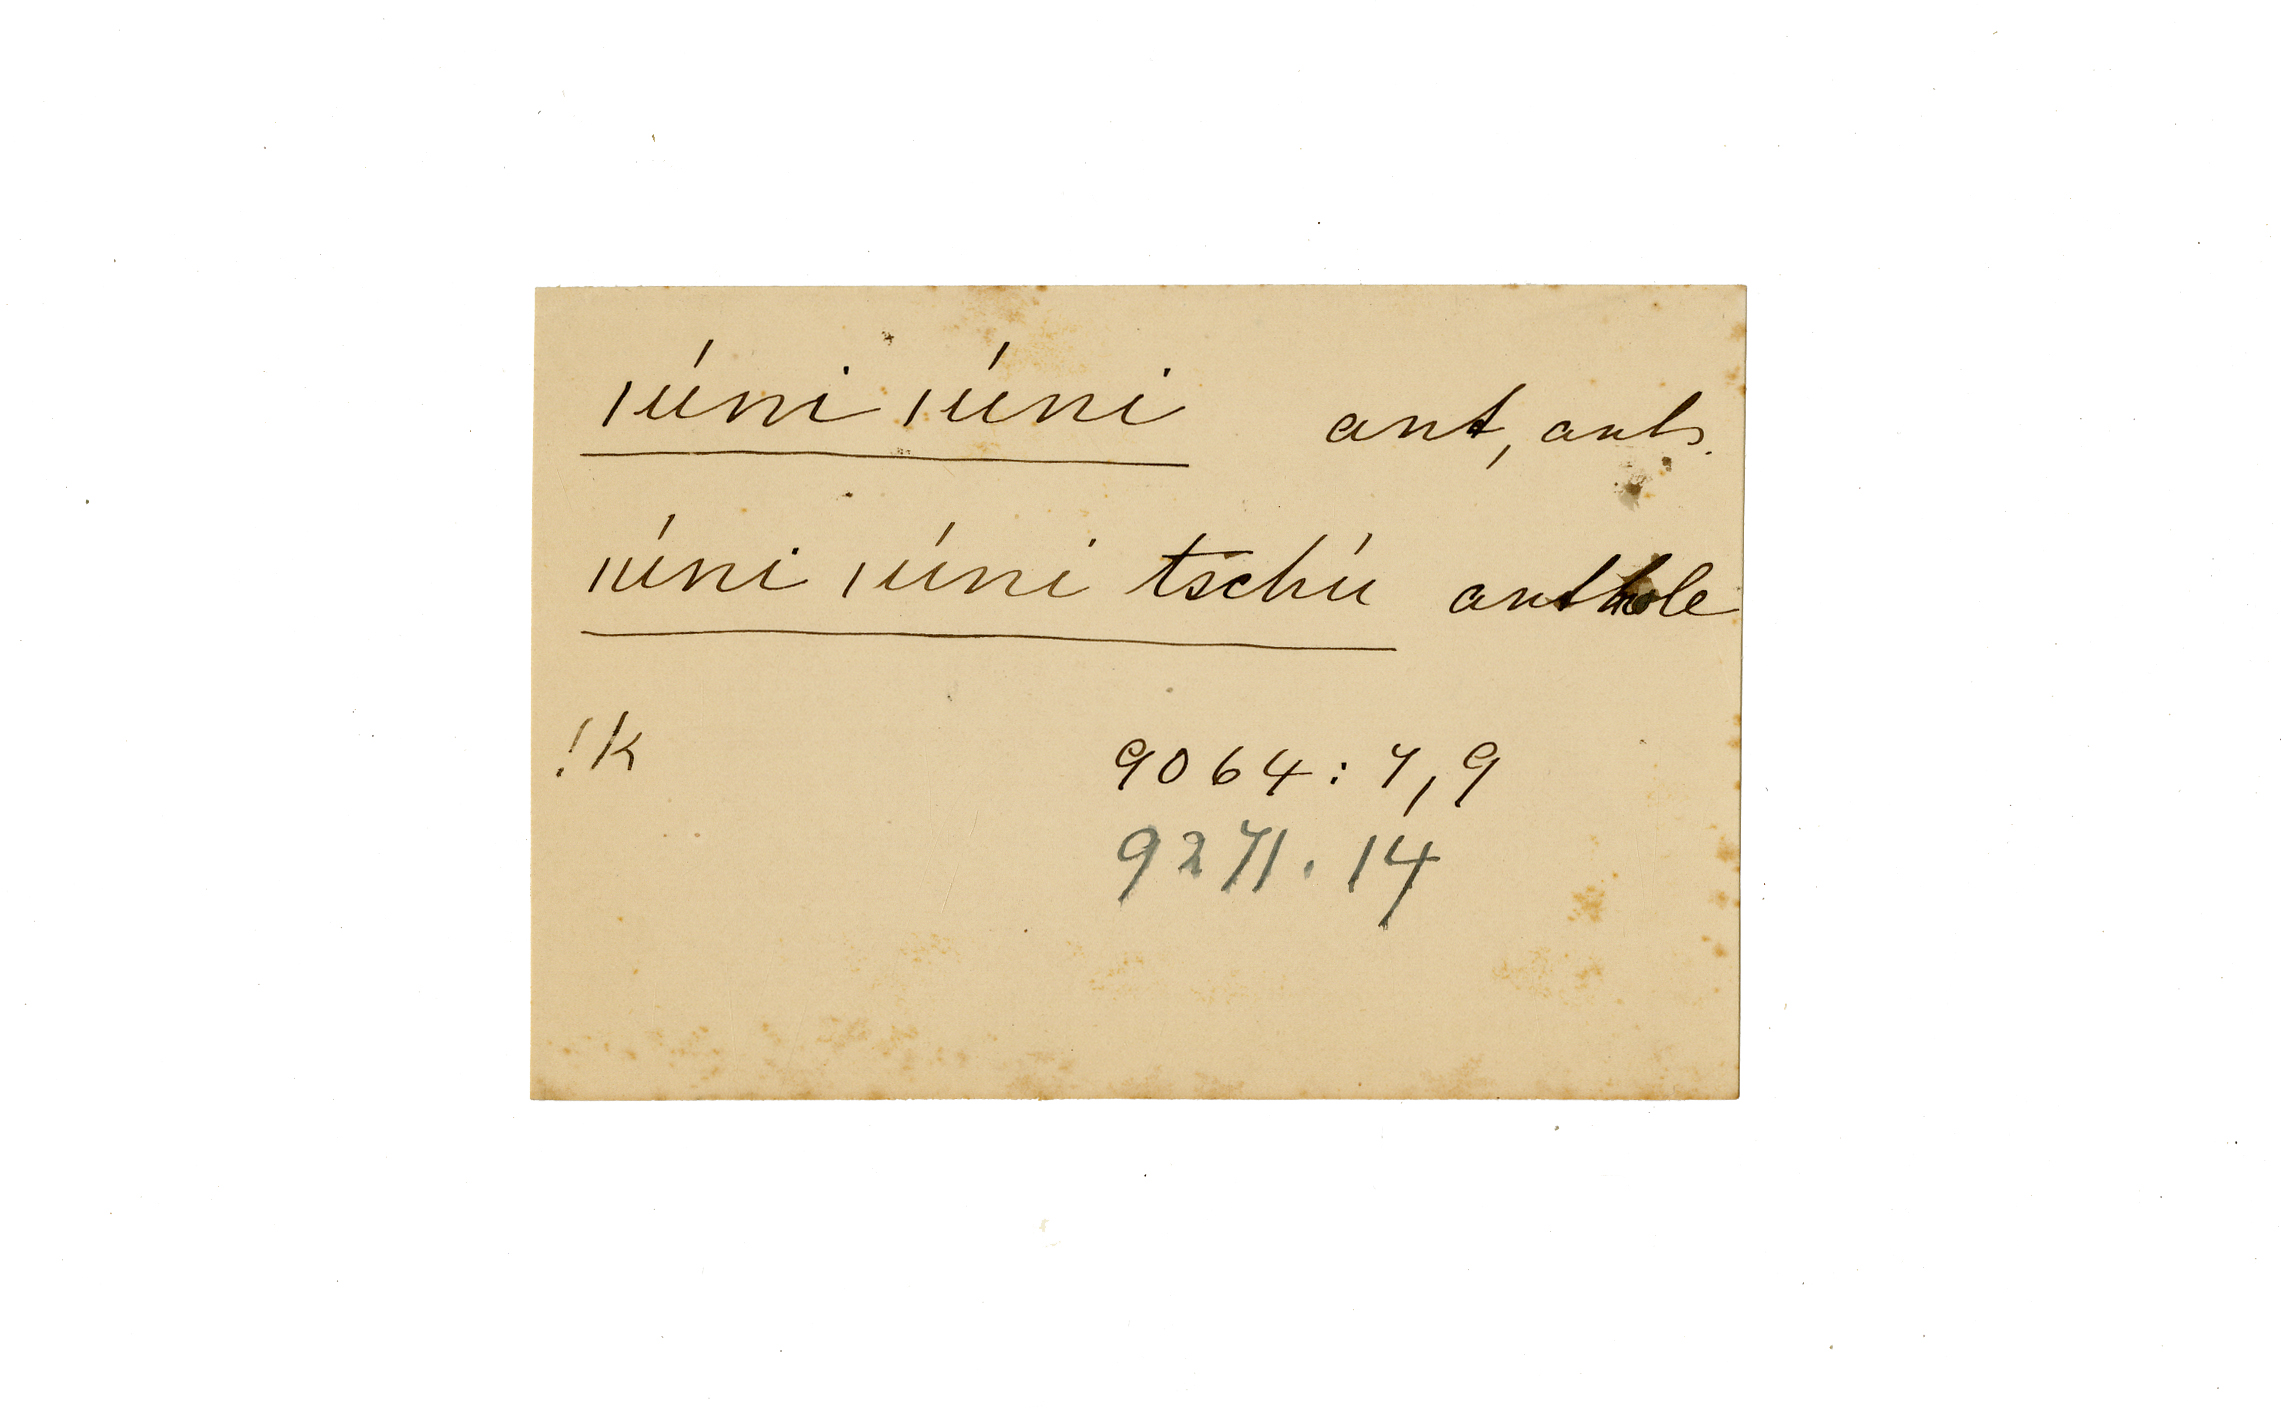 ıúni ıúni ant, ants.
ıúni ıúni tschú anthole
!k 9064:7,9
9271.14